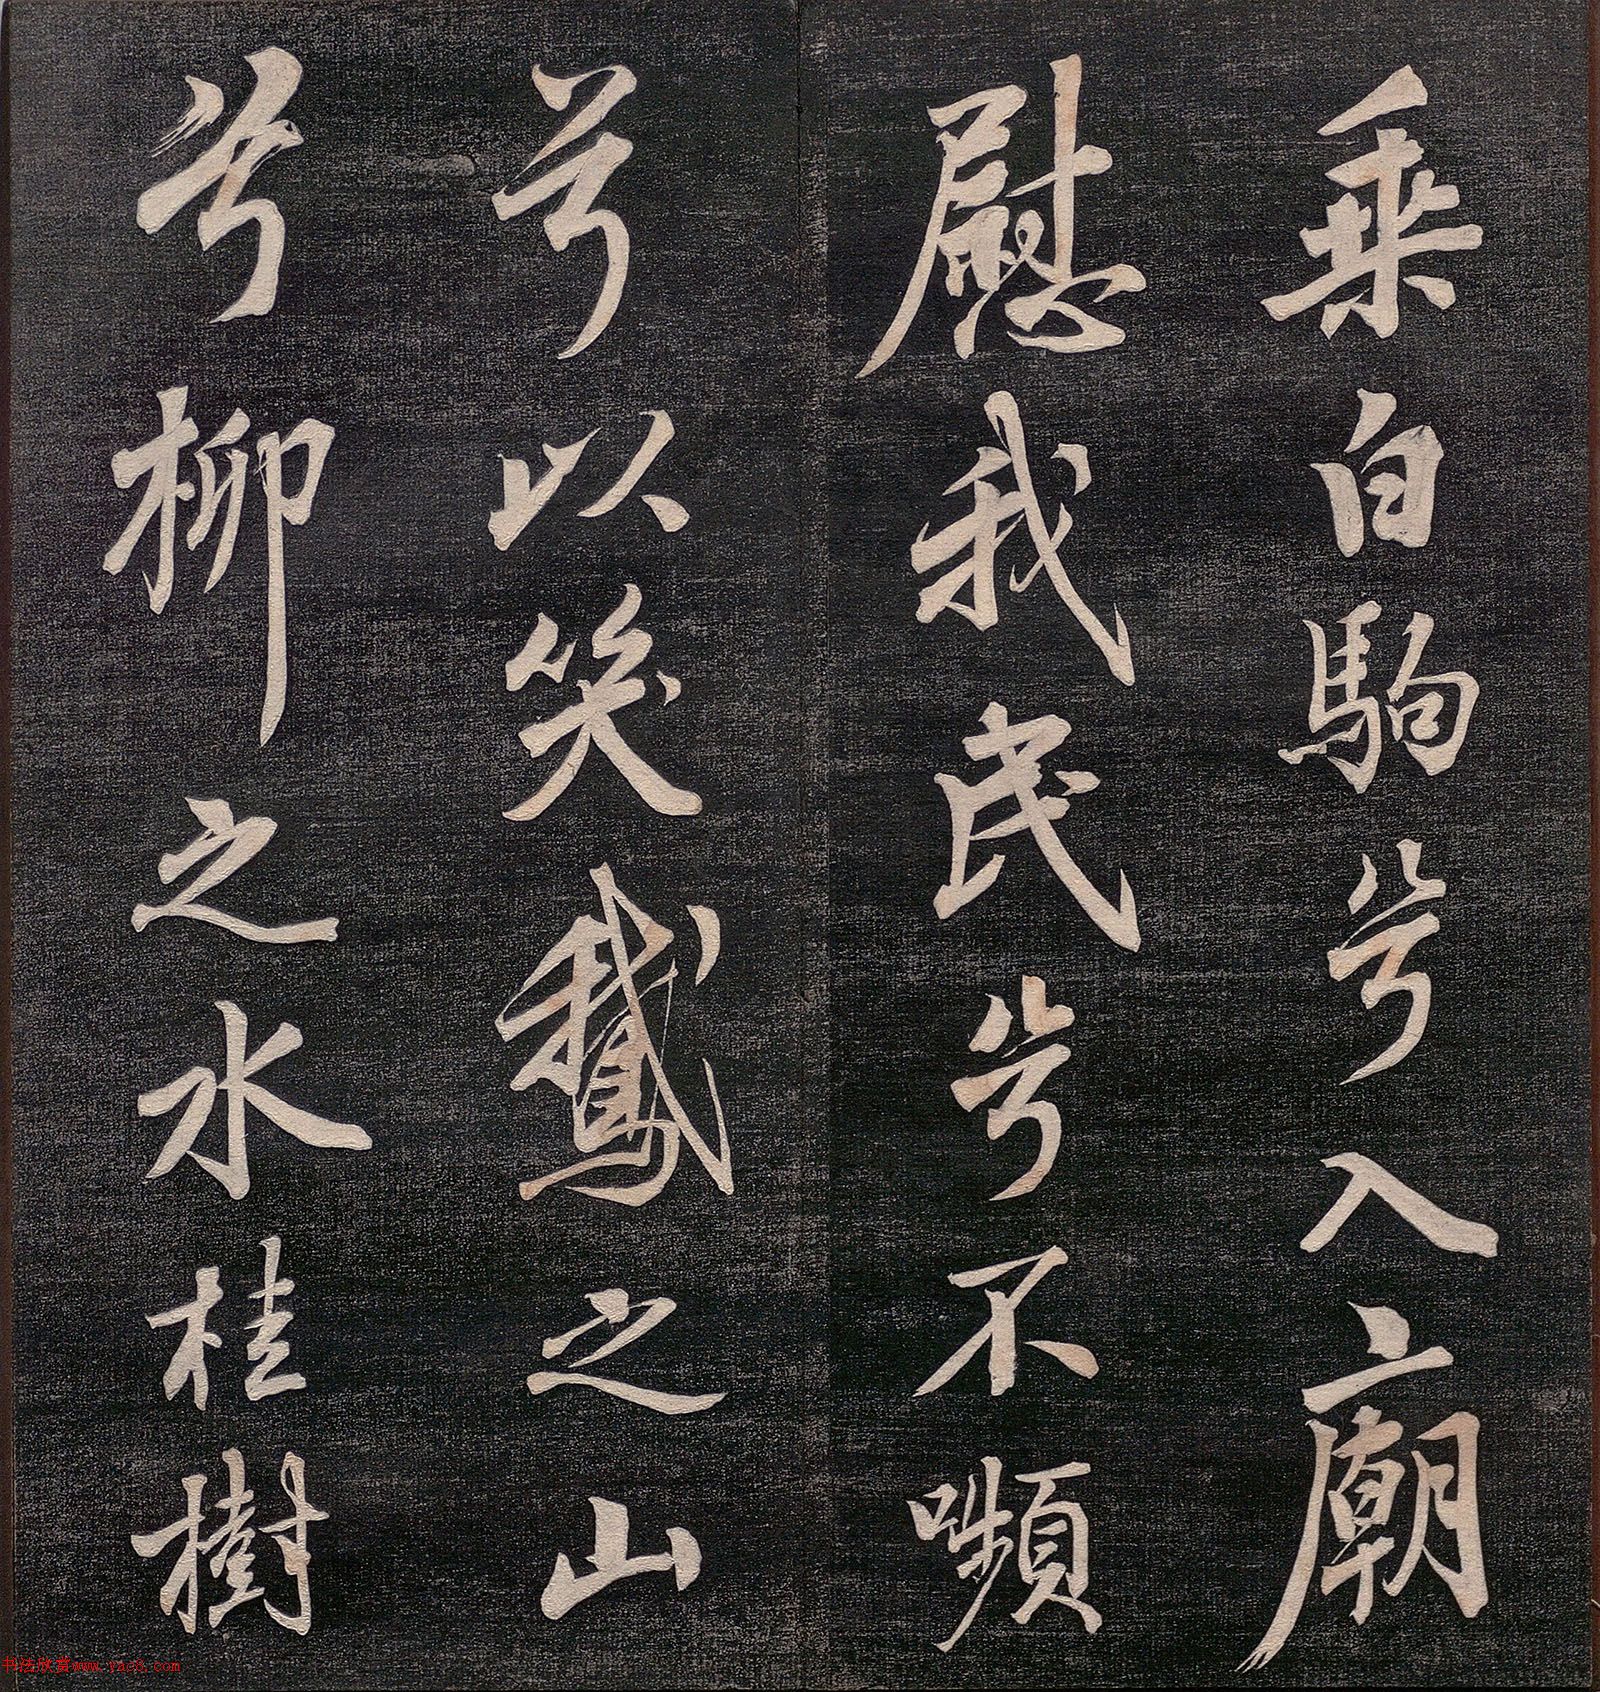 乘白駒兮入廟
慰我民兮不嚬
兮以笑鵝之山
兮柳之水桂樹
书法欣赏www.yac8.com